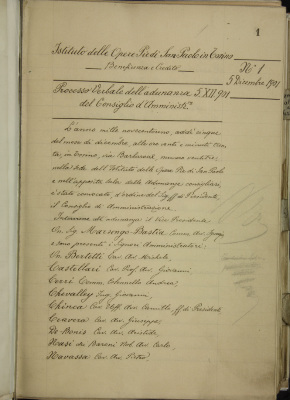 1
Istituto delle Opere Pie di San Paolo in Torino
Beneficenza e Credito
N° 1
5 Dicembre 1901
Processo Verbale dell'adunanza 5.XII.901
del Consiglio d'Amministr.ne
L'anno mille novecentouno, addì cinque
del mese di dicembre, alle ore venti e minuti trenta,
in Torino, via
nella Sede dell'Istituto delle Opere Pie di San Paolo
e nell'apposita Sala delle Adunanze consigliari,
è stato convocato, d'ordine del Sig. ff. di Presidente,
il Consiglio di Amministrazione.
Interviene all'adunanza il Vice Presidente
On. Sig. Marsengo Bastia
e sono presenti i Signori Amministratori:
On. Bertetti Cav. Avv. Michele,
Castellari Cav. Prof. Avv. Giovanni,
Cerri Comm. Colonnello Andrea,
Chevalley Ing. Giovanni,
Chinea Cav. Uff. Avv. Camillo ff. di Presidente,
Cravera Cav. Avv. Giuseppe,
De Bonis Cav. Avv. Aristide,
Nasi dei Baroni Not. Avv. Carlo,
Navassa Cav. Avv. Pietro,